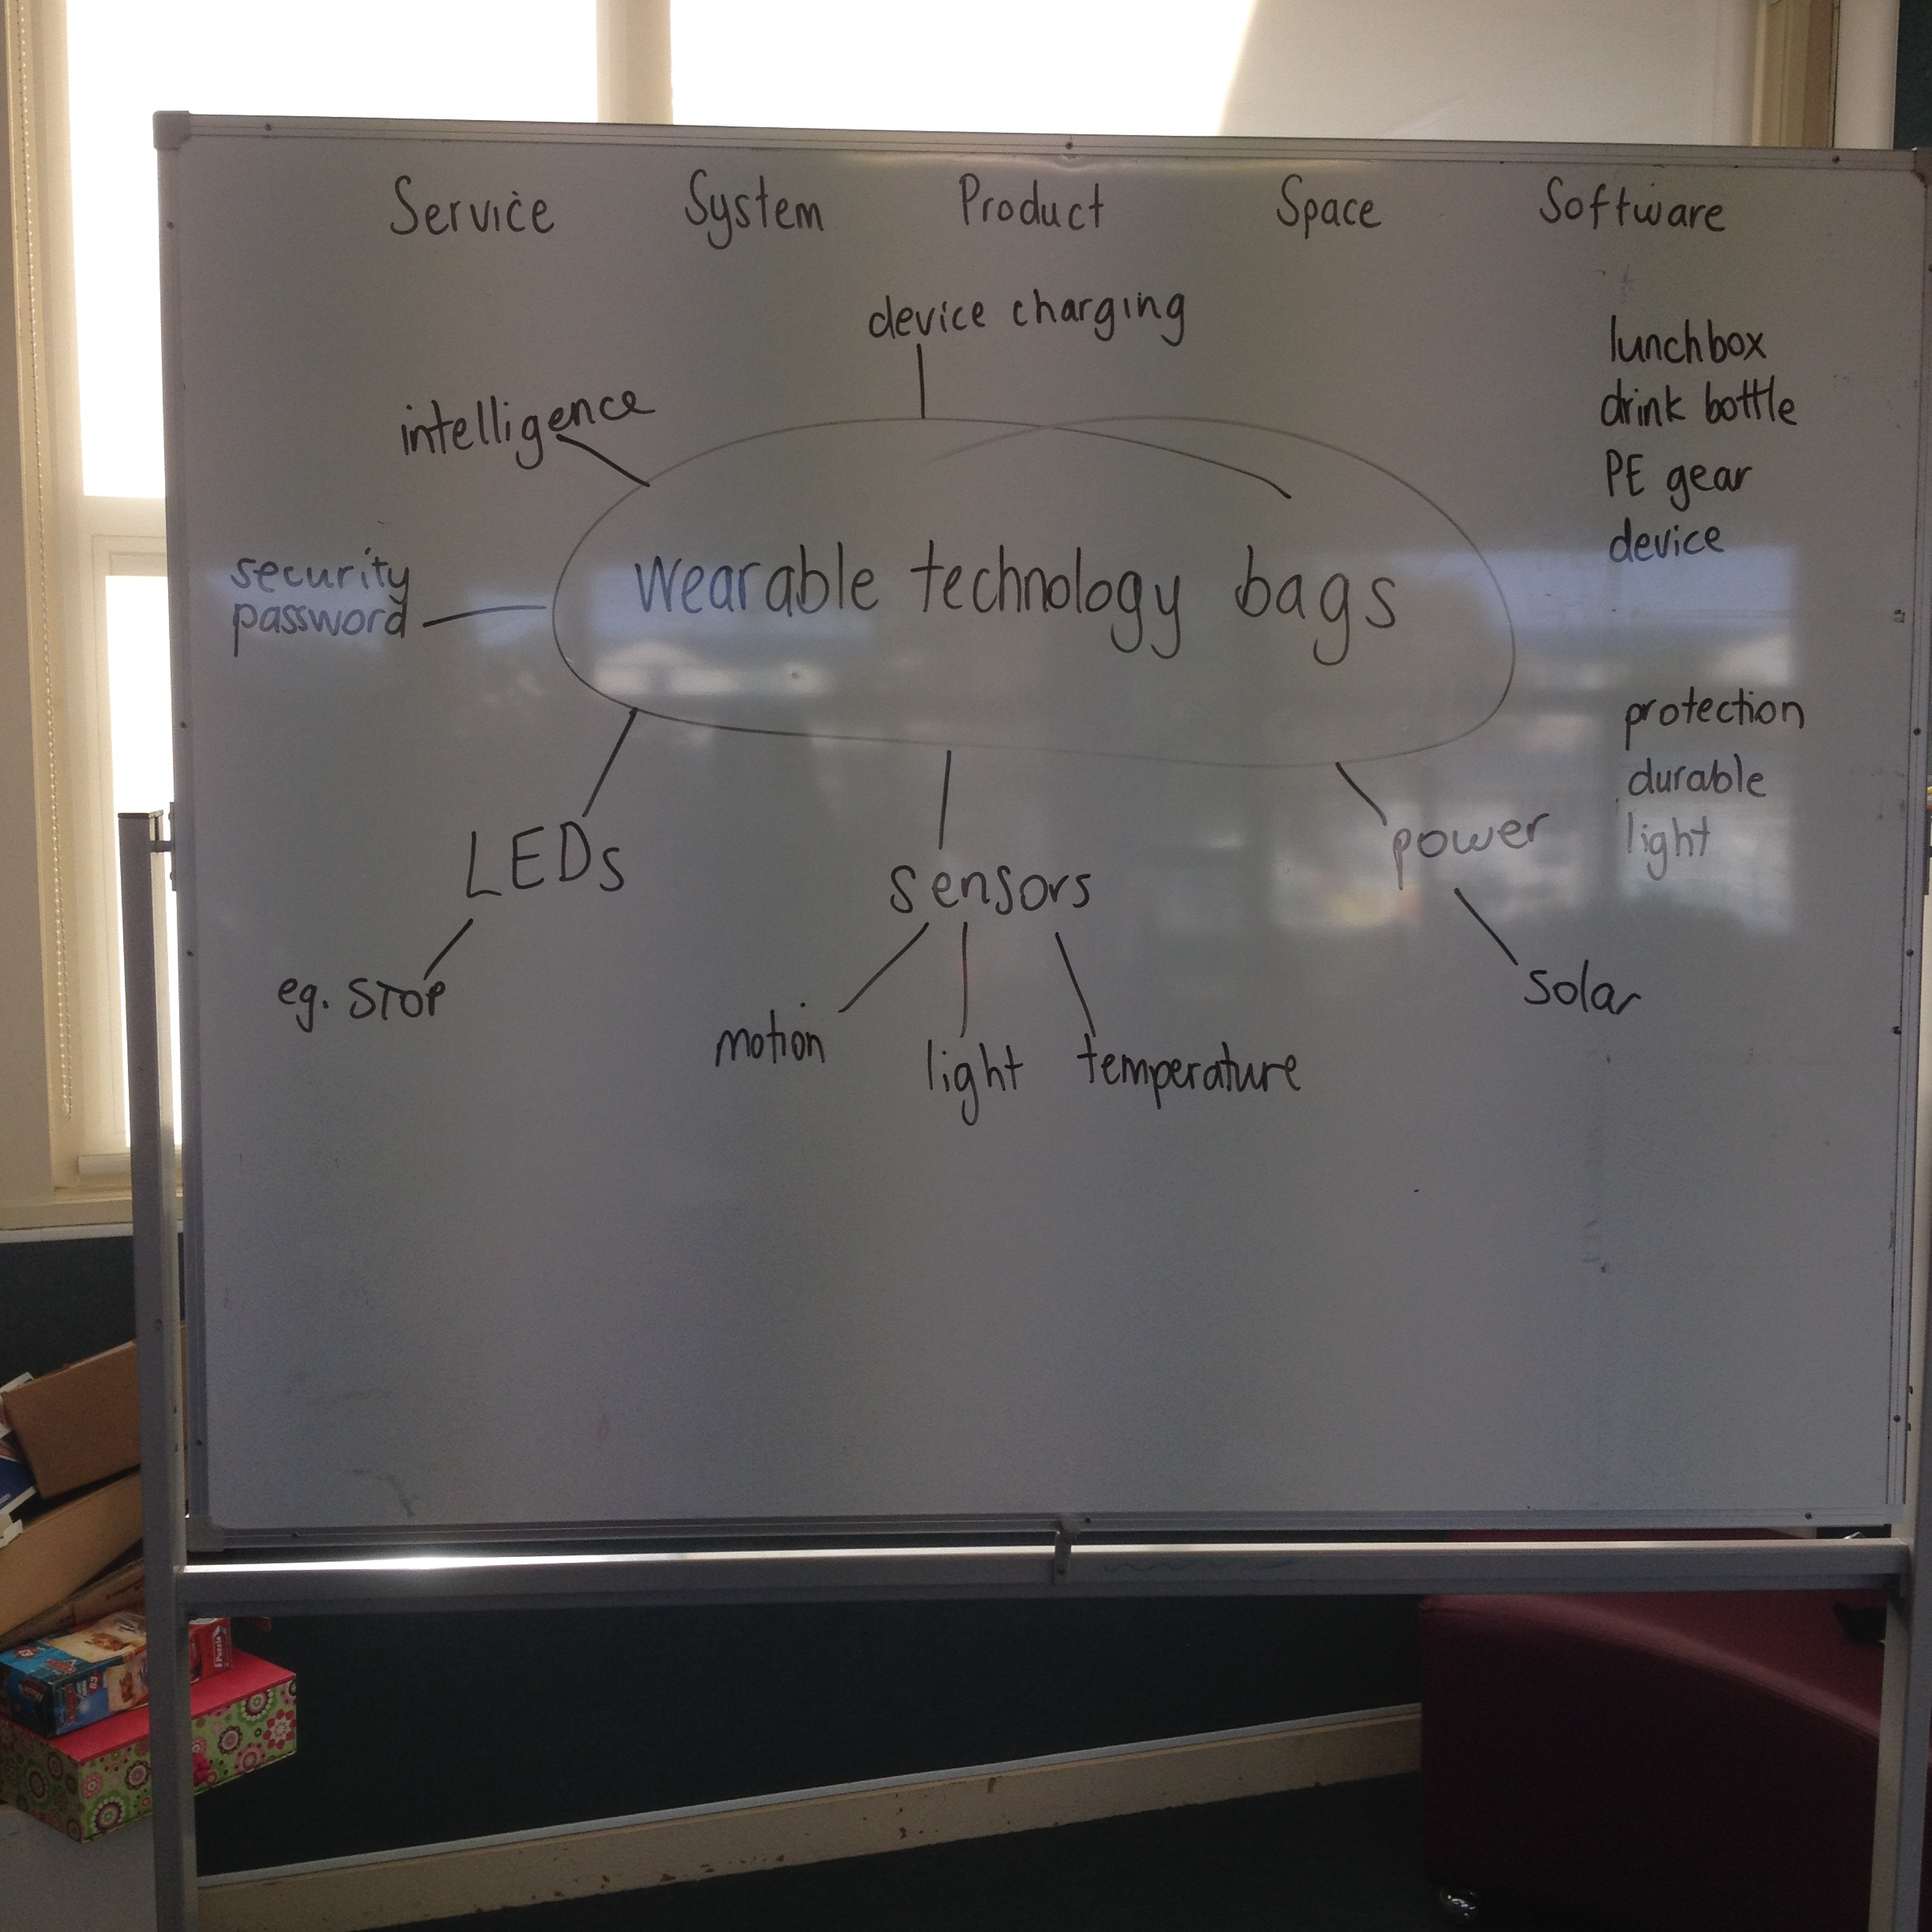 Service System Product Space Software
device charging
intelligence
lunchbox
drink bottle
PE gear
device
security
password
wearable technology bags
protection
durable
light
LEDs
sensors
power
eg. STOP
motion
light
temperature
solar
Puzzle